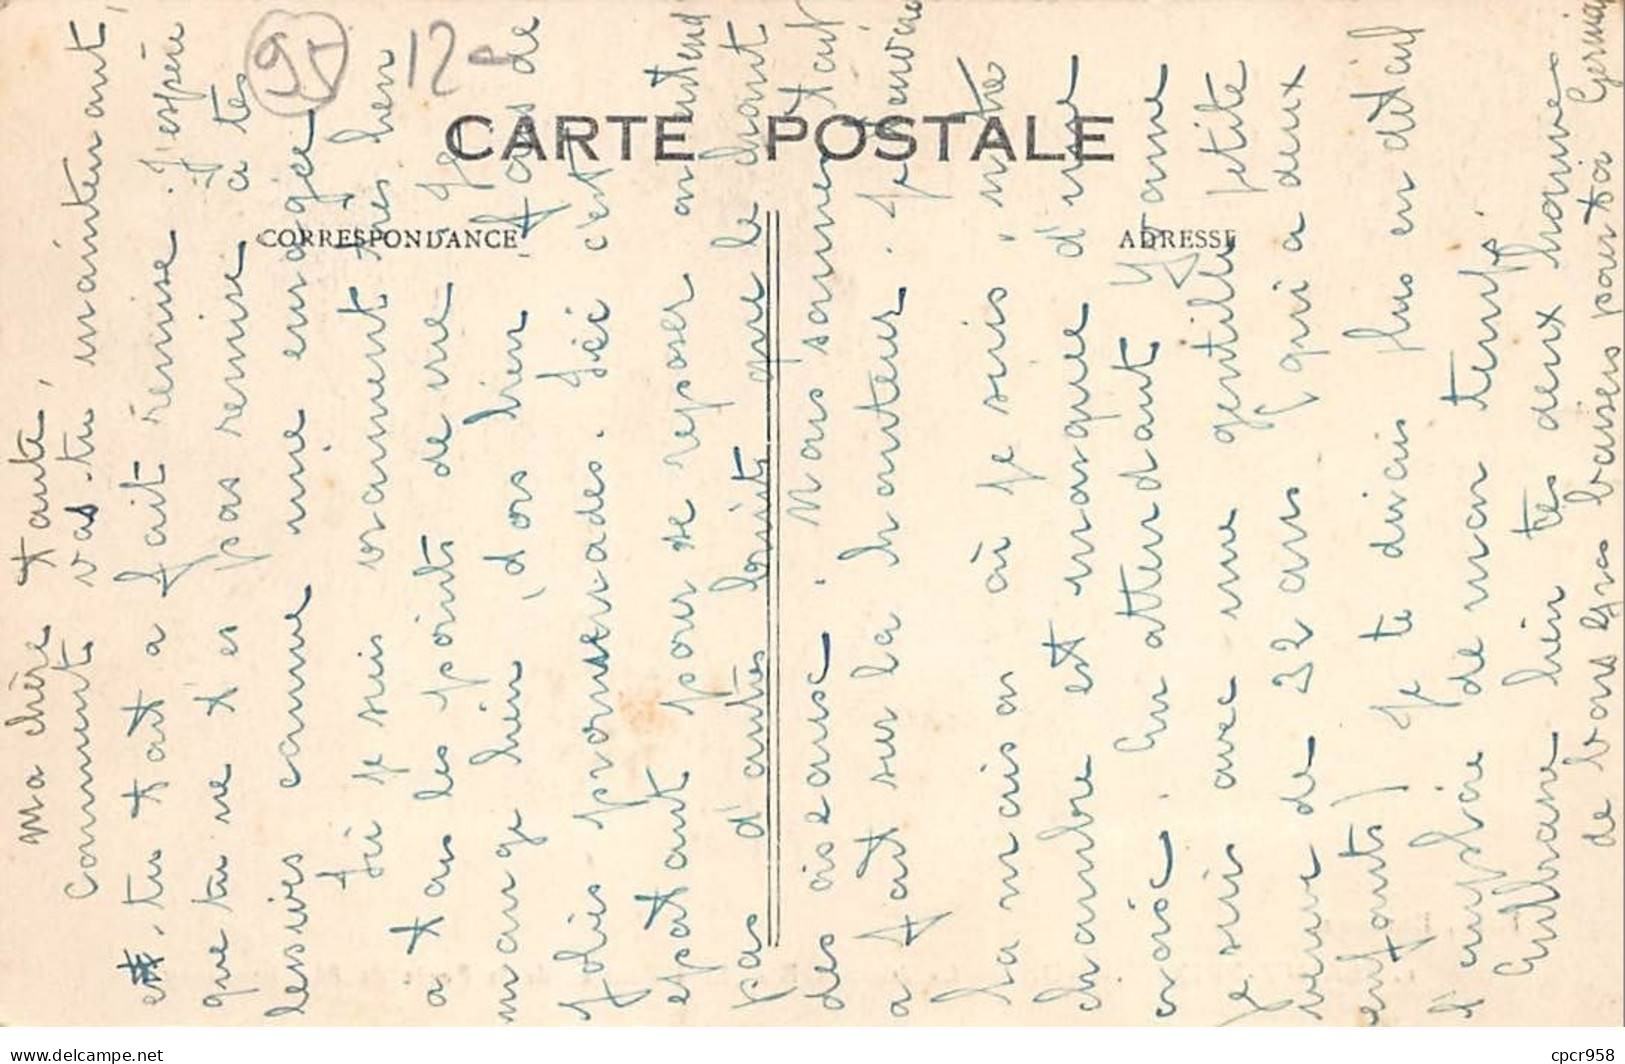 95
12
CARTE POSTALE
CORRESPONDANCE
ADRESSE
Ma chère tante,
Comment vas-tu maintenant,
es-tu tout à fait remise. J'espère
que tu ne t'es pas remise à tes
lessives comme une enragée.
Ici je suis vraiment très bien
à tous les points de vue. Je
mange bien, dors bien, fais de
jolies promenades. Ici c'est
épatant pour se reposer on entend
pas d'autres bruits que le chant
des oiseaux. Nous sommes tout
à fait sur la hauteur.
la maison où je suis, notre
chambre est marquée d'une
croix. En attendant Yvonne
je suis avec une gentille petite
veuve de 32 ans (qui a deux
enfants) je te dirais plus en détail
l'emploie de mon temps.
Embrasse bien tes deux hommes
de bons gros baisers pour toi Germaine
delcampe.net
cpcr958